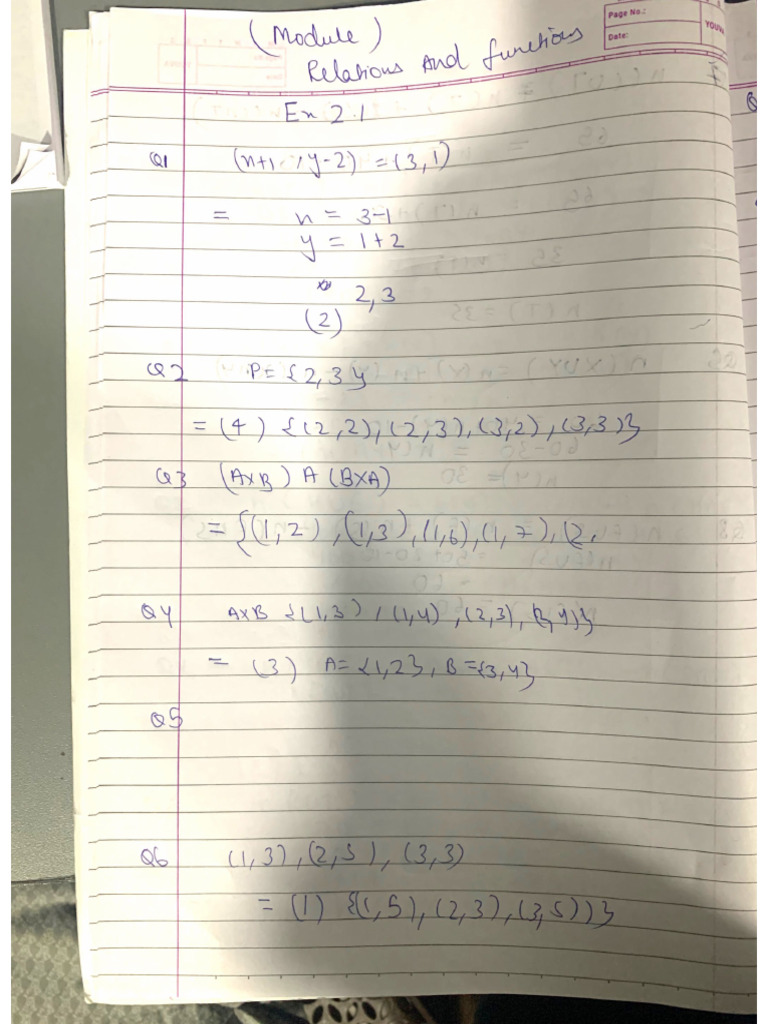 Page No.:
Date:
YOUVA
(Module)
Relations And functions
Ex 2.1
Q1 (x+1, y-2) = (3,1)
= x = 3-1
y = 1+2
2,3
(2)
Q2 P = {2,3}
= (4) {(2,2),(2,3),(3,2),(3,3)}
Q3 (AxB) A (BXA)
= {(1,2),(1,3),(1,6),(1,7),(2,
Q4 AxB {(1,3),(1,4),(2,3),(2,4)}
= (3) A={1,2}, B={3,4}
Q5
Q6 (1,3),(2,5),(3,3)
= (1) {(1,5),(2,3),(3,5))}